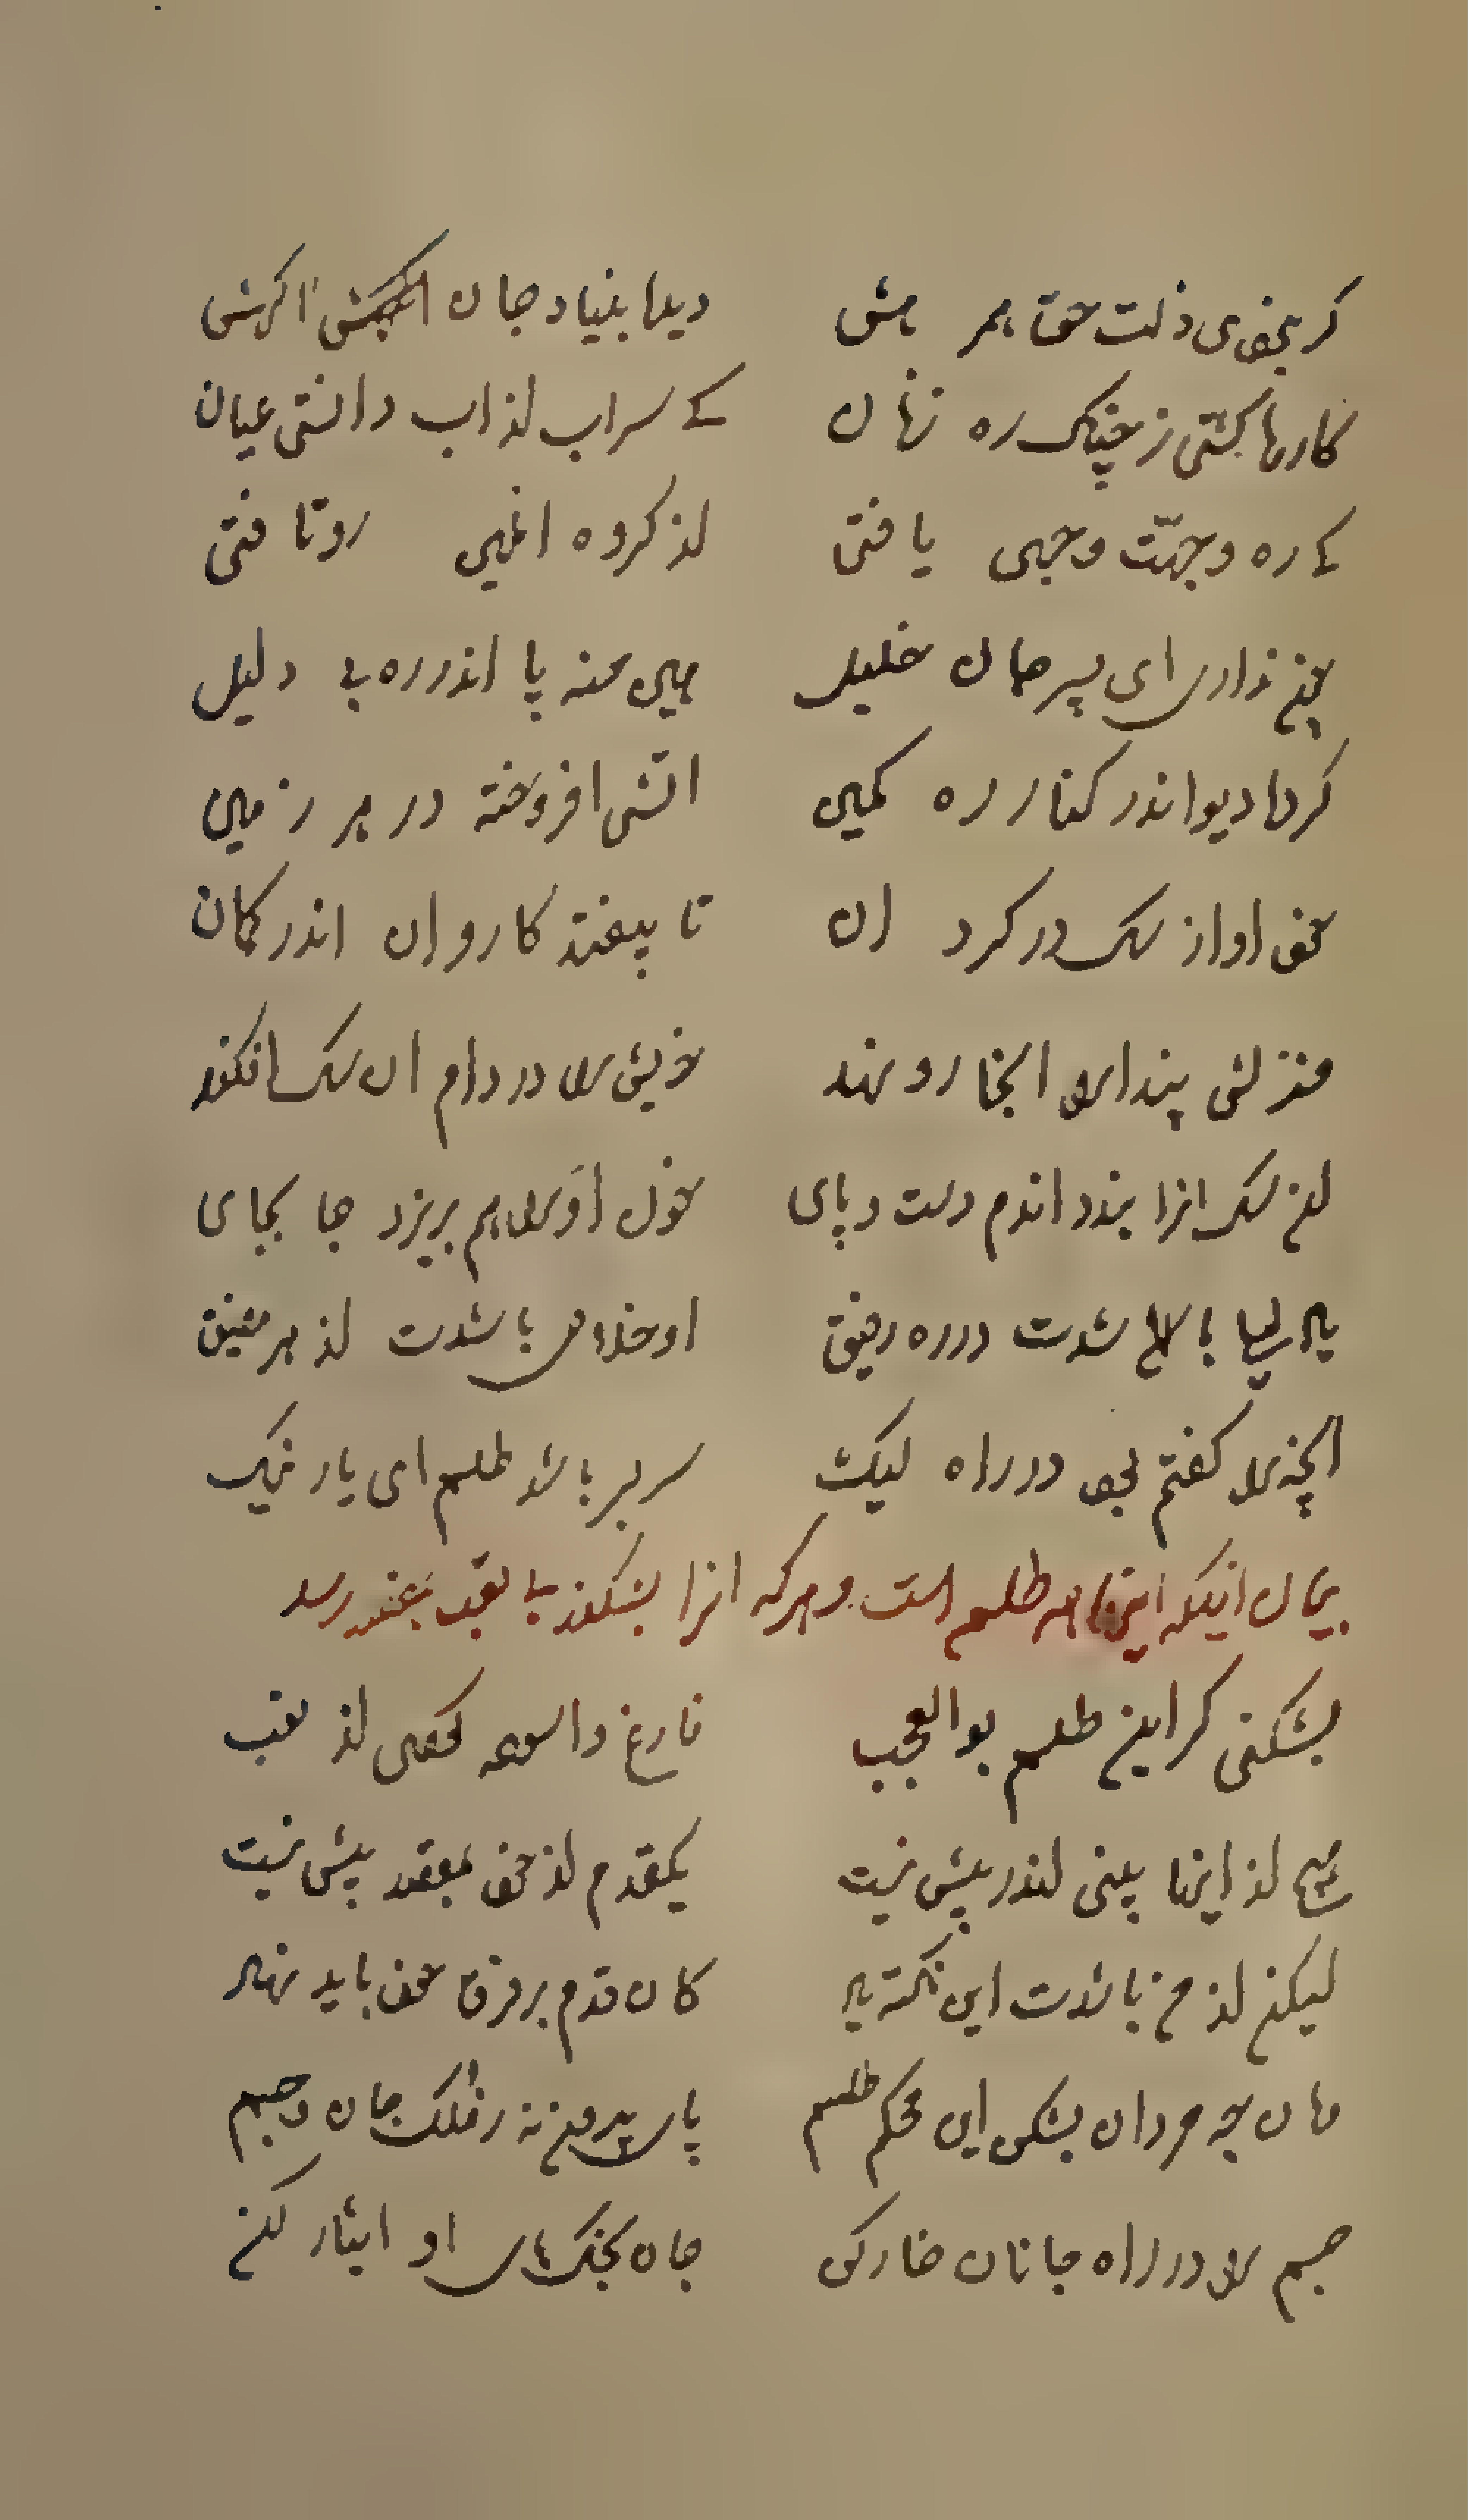 گر بجوی ذات حق همرهش دیدا بنیاد جان اگرش
کارها کشتی ز چنگ ره نهان کی سراب از آب دانستی عیان
کی ره وجهت وجهی یافتی از گروه آفلین روتافتی
چون نداری ای پسر جان خلیل هین منه پا اندر ره بی دلیل
کرده دیو اندر کنار ره کمین آتشی افروخته در هر زمین
خود آواز سگ در کرد آن تا بیفتد کاروان اندر گمان
منزلش پندارد آنجا رو نهد خویش را در دام آن سگ افکند
این سگ آنرا بندد اندم دست و پای غول او را هم بریزد جا بجای
پیر باید شدت در ره رفیق او خلاص باشدت از هر مضیق
آنچه را گفتم بود در راه لیک سر بسر باشد طلسم ای یار نیک
بیان اینکه اینها همه طلسم است و هر که آنرا بشکند بی تعب بمقصد رسد
بشکنی گر این طلسم بوالعجب فارغ و آسوده گردی از تعب
هیچ از اینها بینی اندر پیش نیست یکقدم از خود بمقصد پیش نیست
لیکن از من بایدت این نکته یاد کان قدم بر فرق خود باید نهاد
هان چو مردان بشکن این محکم طلسم پای بیرون نه ز فلک جان و جسم
جسم را در راه جانان خار کن جان بخاک پای او ایثار کن